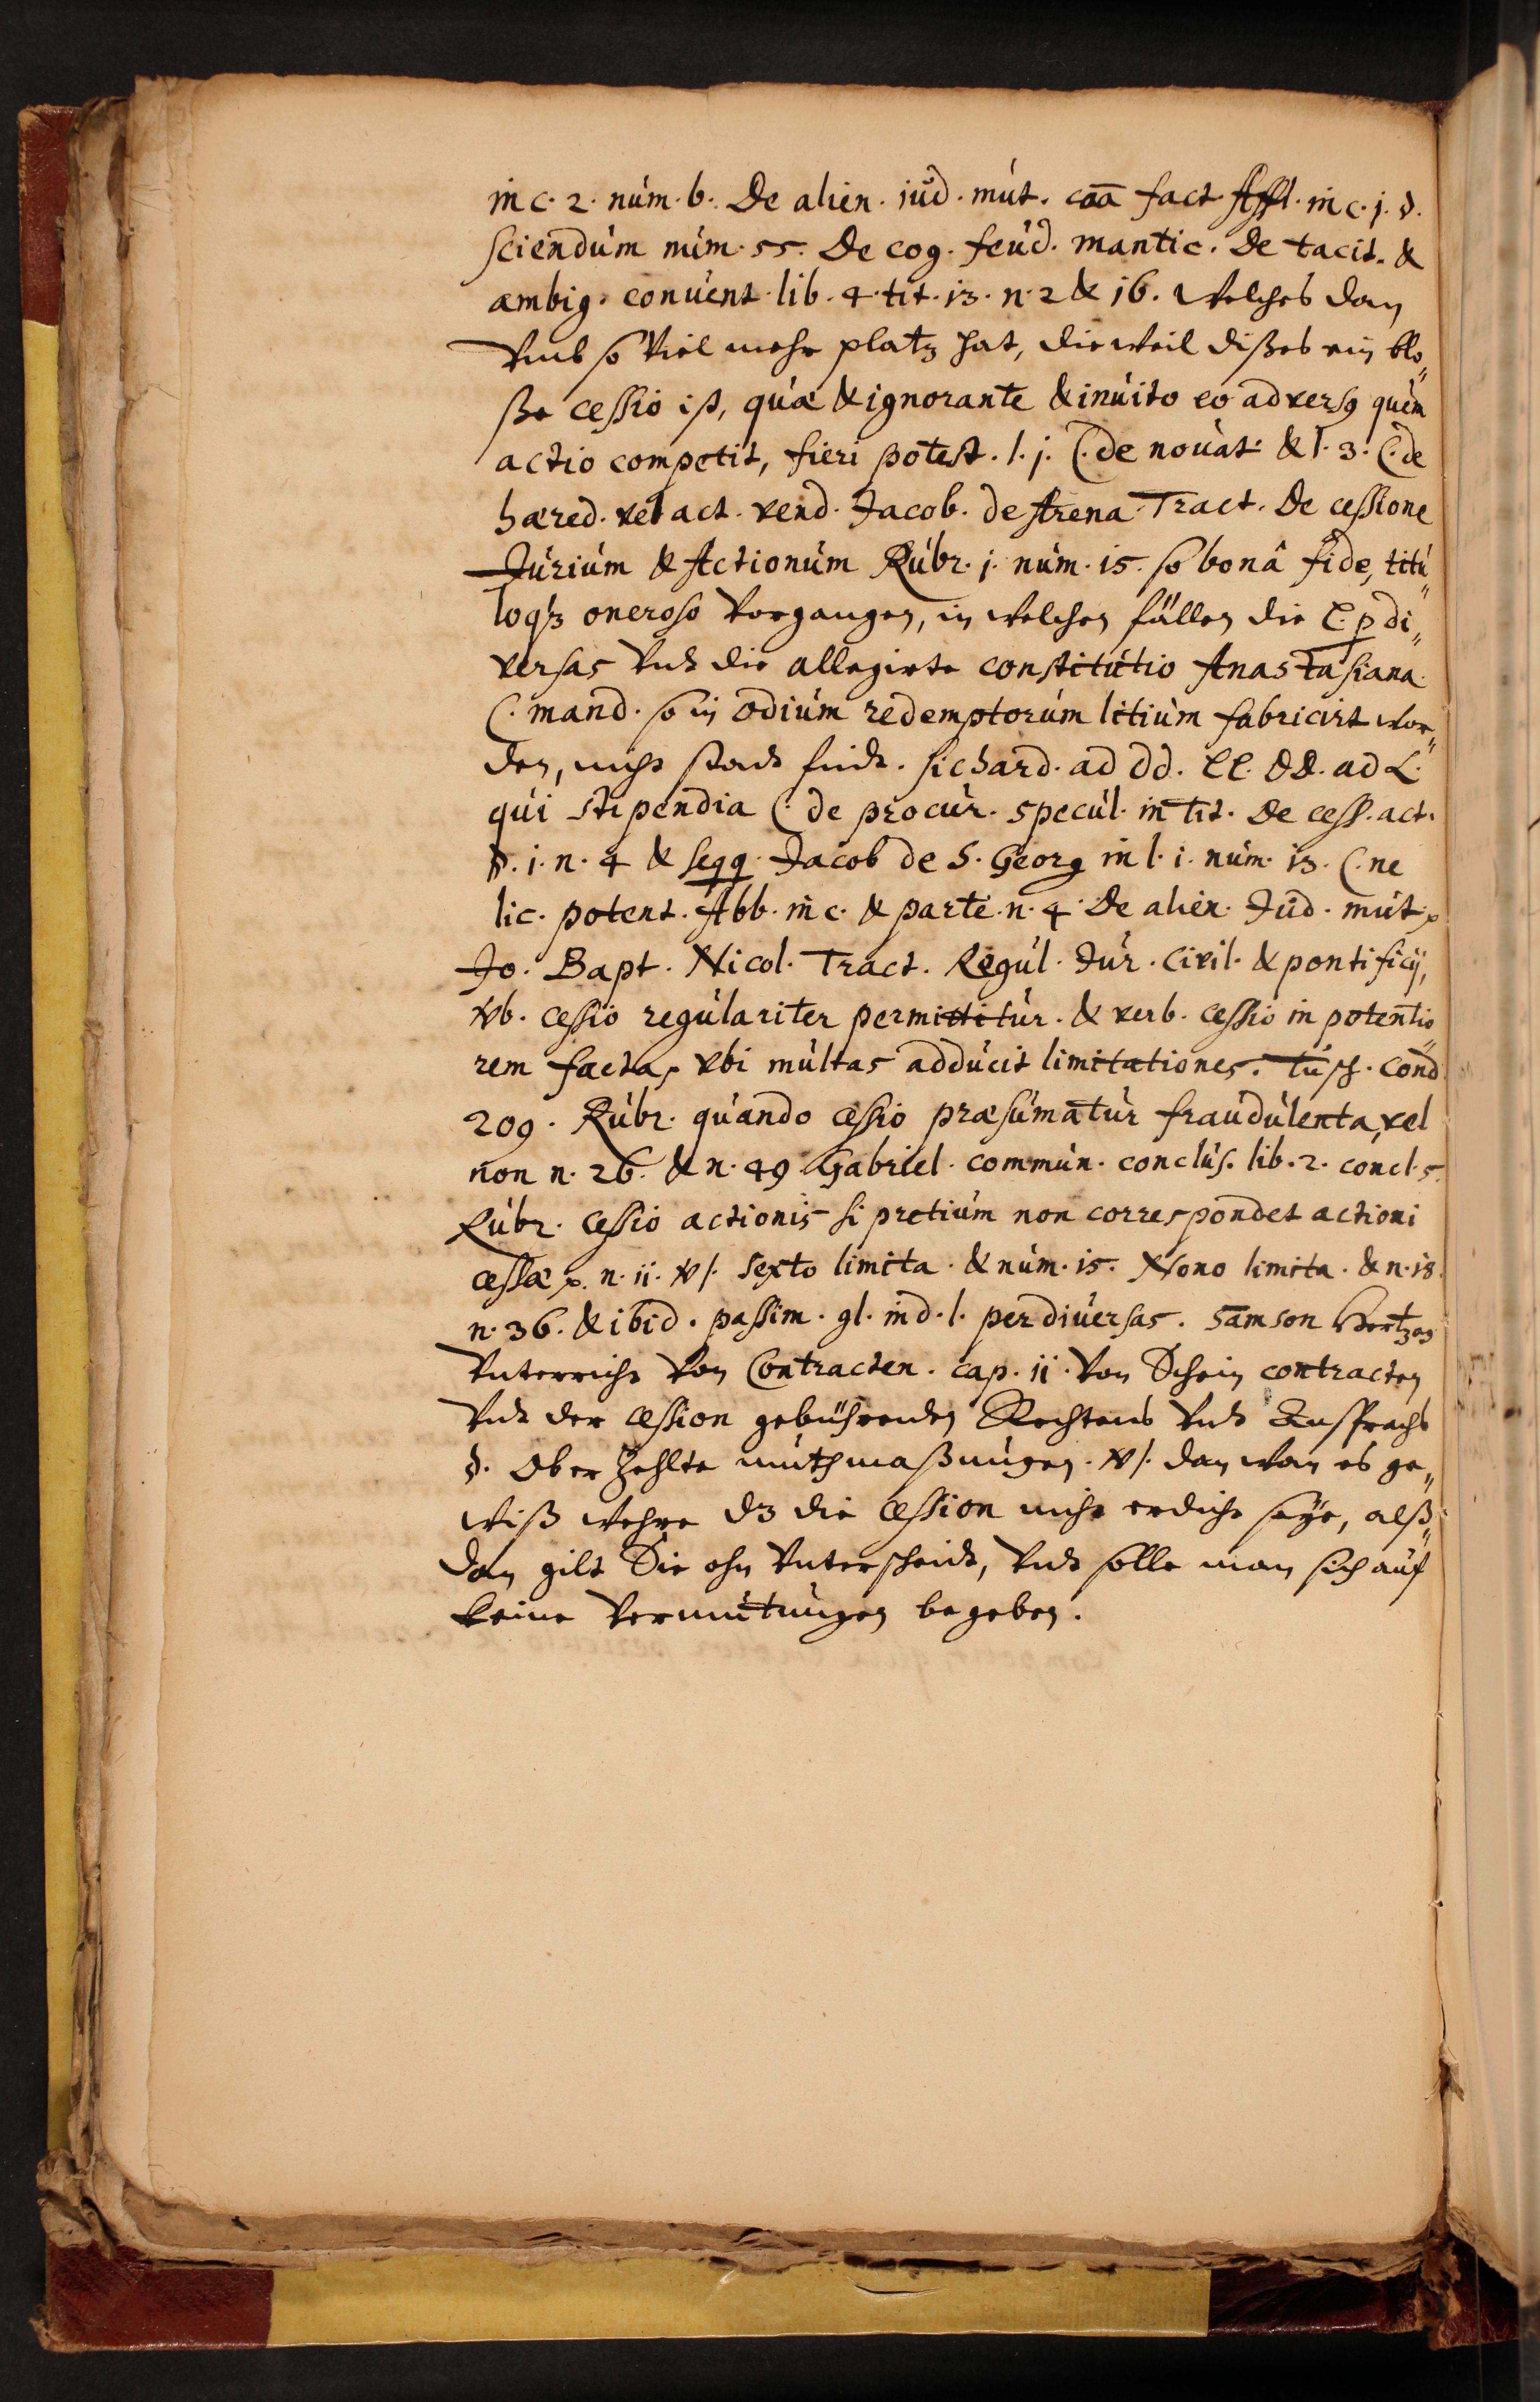 in c. 2. núm. 6. De alien. iúd. mút. caã fact. Affl. in c. j. §.
sciendúm núm. 55. De cog. feúd. mantic. De tacit. &
ambig. conúent. lib. 4. tit. 13. n. 2 & 16. welches dan
vmb so viel mehr platz hat, die weil dißes ein blo„
ße cessio ist, quæ & ignorante & inúito eo adversq quém
actio competit, fieri potest. l. j. C. de nouat. & l. 3. C. de
hæred. vel act. vend. Jacob. de Arena Tract. De cessione
Júriúm & Actionúm Rúbr. j. núm. 15. so bonâ fide, titú„
loqz oneroso vorgangen, in welchen fällen die l. p di„
versas vnd die allegirte constitútio Anastasiana
C. mand. so in odiúm redemptorúm litiúm fabricirt wor„
den, nicht stadt findt. Sichard. ad dd. ll. DD. ad L.
qúi stipendia C. de procúr. Specúl. in tit. De cess. act.
§. i. n. 4 & seqq. Jacob de S. Georg in l. i. núm. 13. C. ne
lic. potent. Abb. in c. & parte. n. 4 De alien. Júd. mút.
Jo. Bapt. Nicol. Tract. Regúl. Júr. Civil. & pontificij,
vb. cessio regúlariter permittitúr. & verb. cessio in potentio„
rem facta, vbi múltas addúcit limitationes. Túsch. Cond
209. Rúbr. qúando cessio præsúmatúr fraúdúlenta, vel
non n. 26. & n. 49 Gabriel. commún. conclús. lib. 2. concl. 5.
Rúbr. Cessio actionis si pretiúm non correspondet actioni
cessæ. n. ii. v/. Sexto limita. & núm. 15. Nono limita. & n. 18.
n. 36. & ibid. passim. gl. in d. l. per diúersas. Samson Hertzog
Vnterricht von Contracten. cap. ii. von Schein contracten
vnd der cession gebührenden Rechtens vnd Ansprachs
§. Ob erzehlte múthmaßúngen. v/. dan wan es ge„
wiß wehre dz die cession nicht erdicht seÿe, alß„
dan gilt Sie ohn Vnterscheidt, vnd solle man sich aúf
keine vermútúngen begeben.